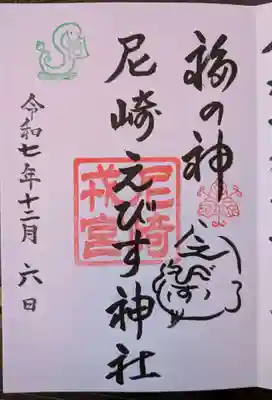 福の神
尼崎えびす神社
尼崎
戎宮
えびす
令和七年十二月六日